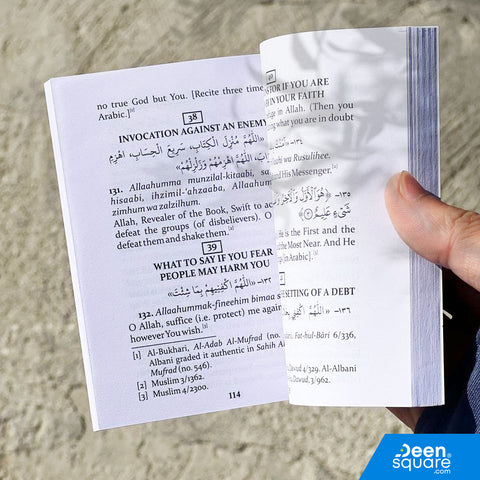 no true God but You. [Recite three time
Arabic.]
38
INVOCATION AGAINST AN ENEMY
«اللَّهُمَّ مُنْزِلَ الْكِتَابِ، سَرِيعَ الْحِسَابِ، اهْزِمِ
اللَّهُمَّ اهْزِمْهُمْ وَزَلْزِلْهُمْ»
131. Allaahumma munzilal-kitaabi, sa
hisaabi, ihzimil-'ahzaaba, Allaahum
zimhum wa zalzilhum.
Allah, Revealer of the Book, Swift to ac
defeat the groups (of disbelievers). O
defeat them and shake them.[2]
39
WHAT TO SAY IF YOU FEAR
PEOPLE MAY HARM YOU
١٣٢- «اللَّهُمَّ اكْفِنِيهِمْ بِمَا شِئْتَ»
132. Allaahummak-fineehim bimaa s
O Allah, suffice (i.e. protect) me again
however You wish.[3]
[1] Al-Bukhari, Al-Adab Al-Mufrad (no.
Albani graded it authentic in Sahih Al
Mufrad (no. 546).
[2] Muslim 3/1362.
[3] Muslim 4/2300.
114
40
S FOR IF YOU ARE
IN YOUR FAITH
efuge in Allah. (Then you
ting what you are in doubt
١٣٤-
hi wa Rusulihee.
nd His Messenger.[2]
١٣٥- «هُوَ الْأَوَّلُ وَالْآخِرُ
شَيْءٍ عَلِيمٌ»
He is the First and the
the Most Near. And He
in Arabic].
E SETTLING OF A DEBT
١٣٦- «اللَّهُمَّ اكْفِنِي
ari. Fat-hul-Bari 6/336,
Dawud 4/329. Al-Albani
Dawud, 3/962.
Deen
square
.com